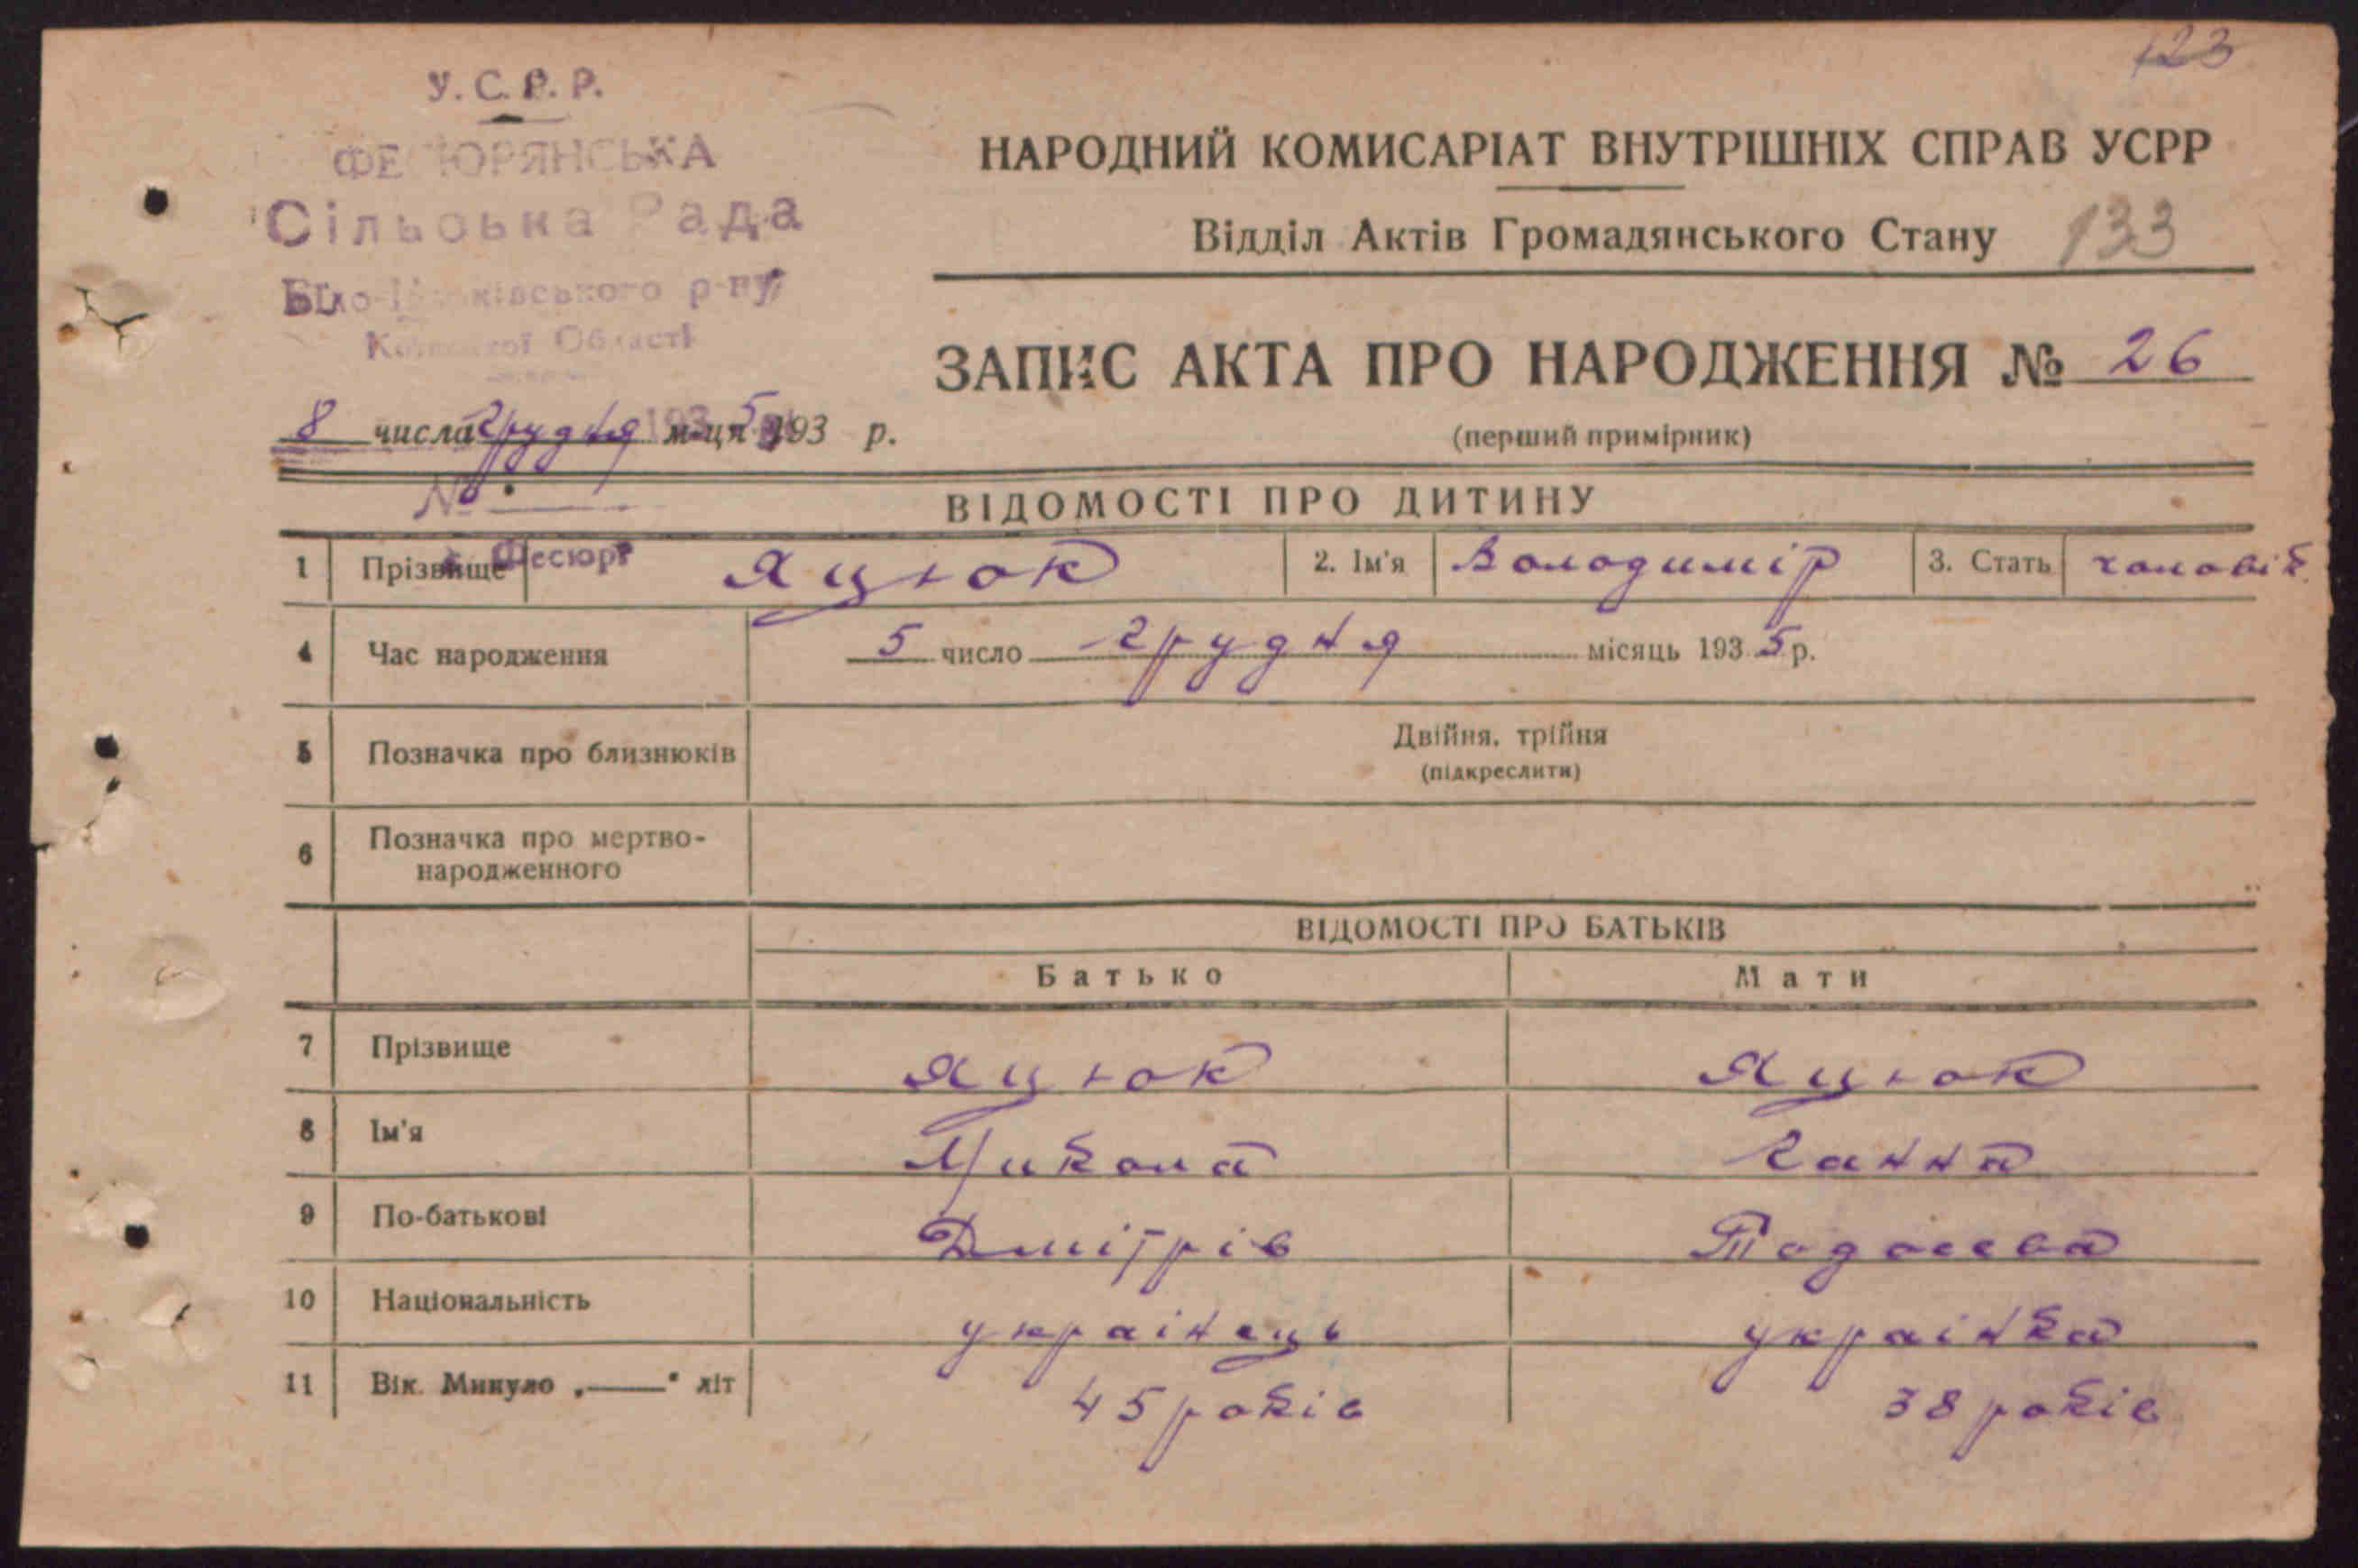 123
У. С. Р. Р.
Сільська Рада
р-ну
Області
НАРОДНИЙ КОМИСАРІАТ ВНУТРІШНІХ СПРАВ УСРР
Відділ Актів Громадянського Стану 133
ЗАПИС АКТА ПРО НАРОДЖЕННЯ № 26
(перший примірник)
8 числа грудня м-ця 193 5 р.
№
ВІДОМОСТІ ПРО ДИТИНУ
1 Прізвище Яцюк 2. Ім'я Володимір 3. Стать чоловік.
с. Фесюри
4 Час народження 5 число грудня місяць 193 5 р.
5 Позначка про близнюків Двійня, трійня
(підкреслити)
6 Позначка про мертво-
народженного
ВІДОМОСТІ ПРО БАТЬКІВ
Батько Мати
7 Прізвище Яцюк Яцюк
8 Ім'я Микола Ганна
9 По-батькові Дмітрів Тодосева
10 Національність українець українка
11 Вік. Минуло „—" літ 45 років 38 років